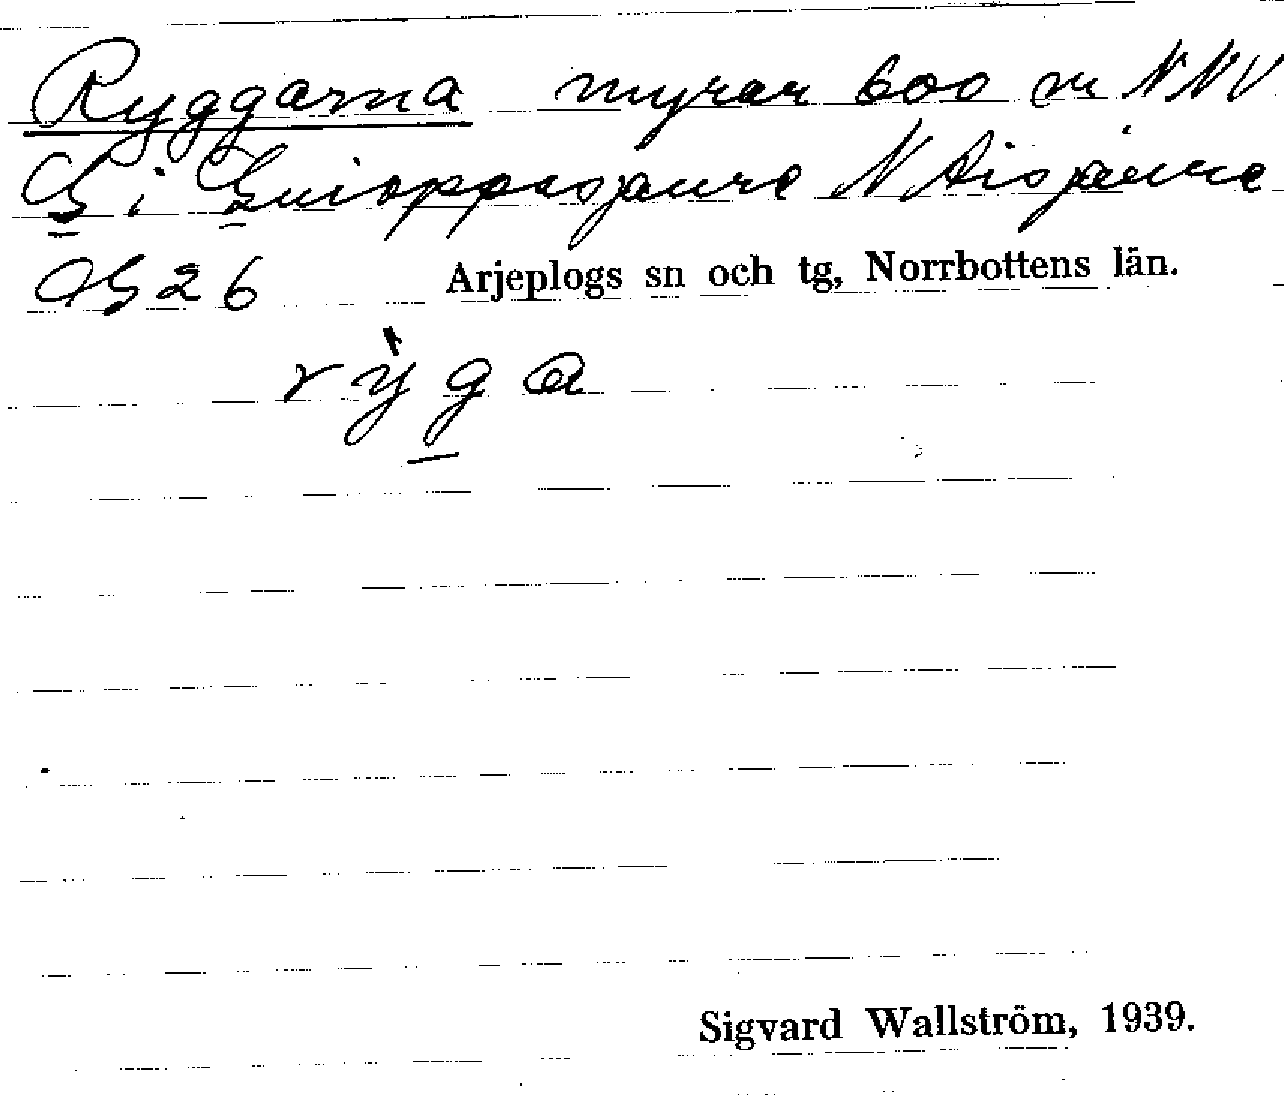 Ryggarna myrar 600 m NNV
G i Guioppasjaure N Aisjaure
AG26 Arjeplogs sn och tg, Norrbottens län.
rỳga
Sigvard Wallström, 1939.